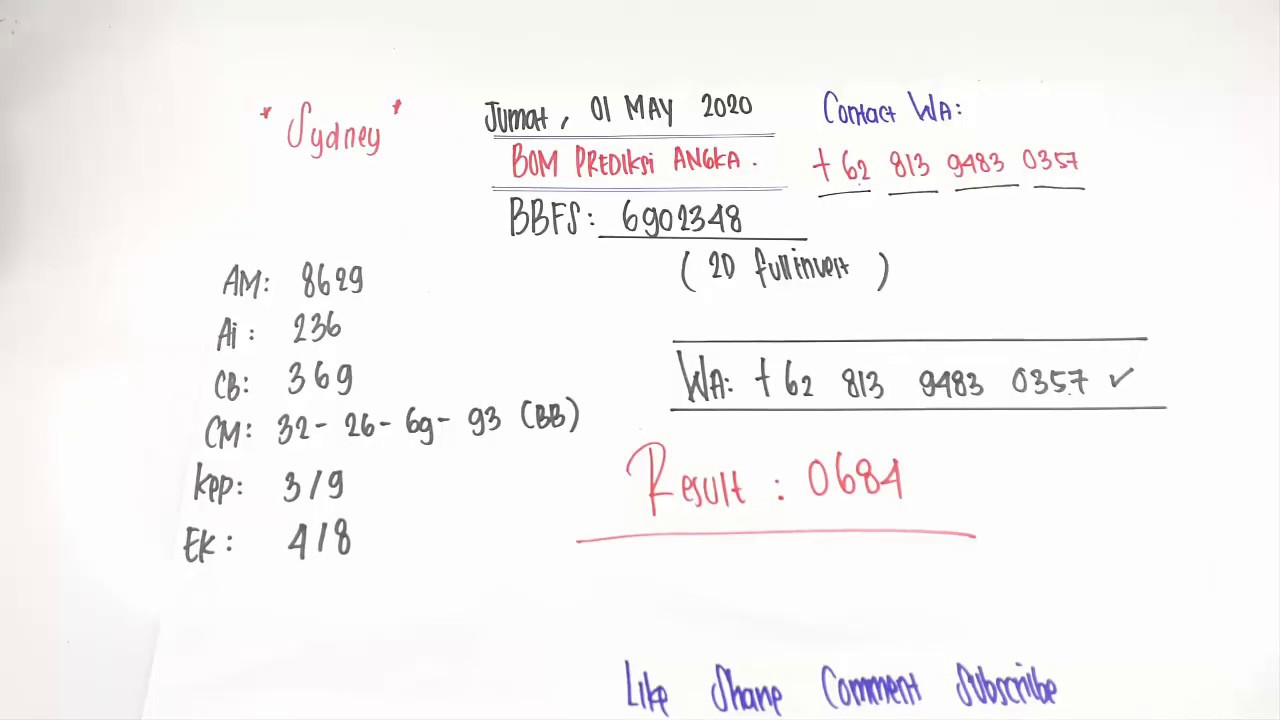 * Sydney *
Jumat, 01 MAY 2020
BOM PREDIKSI ANGKA.
BBFS: 6902348
(2D full invert)
Contact WA:
+62 813 9483 0357
AM: 8629
Ai: 236
CB: 369
CM: 32- 26- 69- 93 (BB)
kpp: 3/9
Ek: 4/8
WA: +62 813 9483 0357 ✓
Result: 0684
Like Share Comment Subscribe